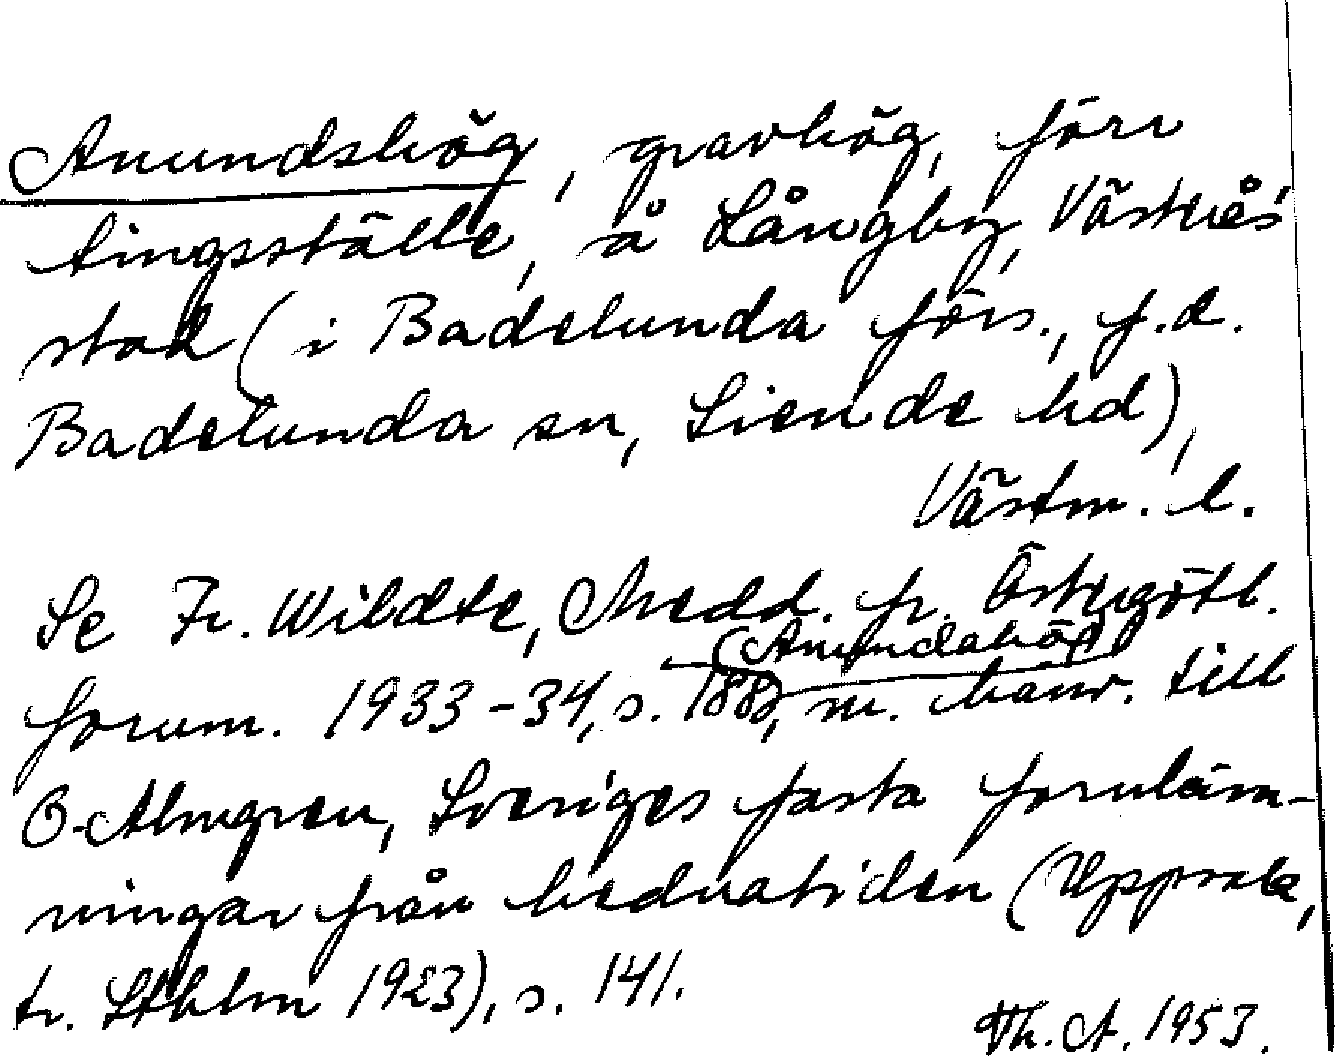 Anundshög, gravhög, förr
tingsställe, å Långby, Västerås
stad (i Badelunda förs., f.d.
Badelunda sn, Siende hd),
Västm. l.
Se Fr. Wildte, Medd. fr. Östergötl.
(Anundshög)
fornm. 1933-34, s. 188, m. hänv. till
O. Almgren, Sveriges fasta fornläm-
ningar från hednatiden (Uppsala,
tr. Sthlm 1923), s. 141.
Th. A. 1953.